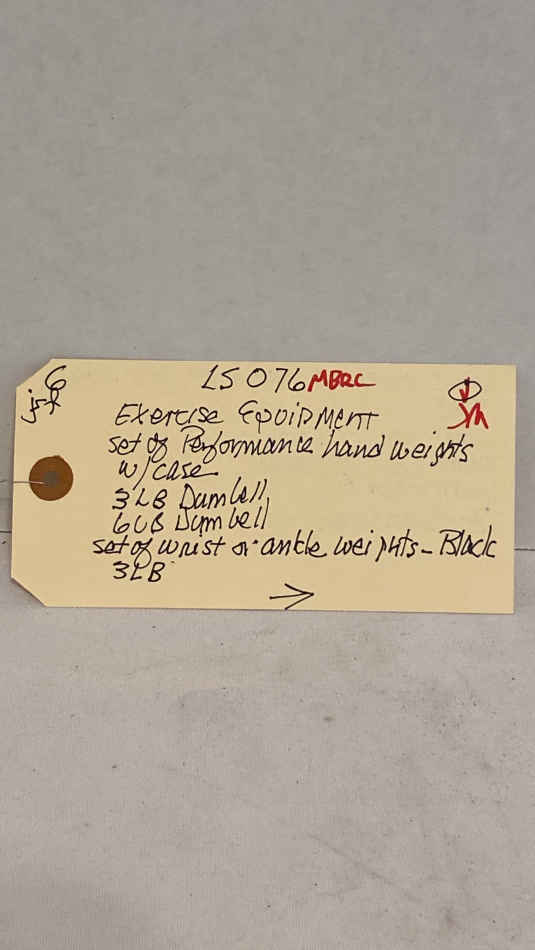 6
jst
LS 076 MBRC
Exercise Equipment
set of Performance hand weights
w/case
3 LB Dumbell
6 LB Dumbell
set of wrist or ankle weights - Black
3LB